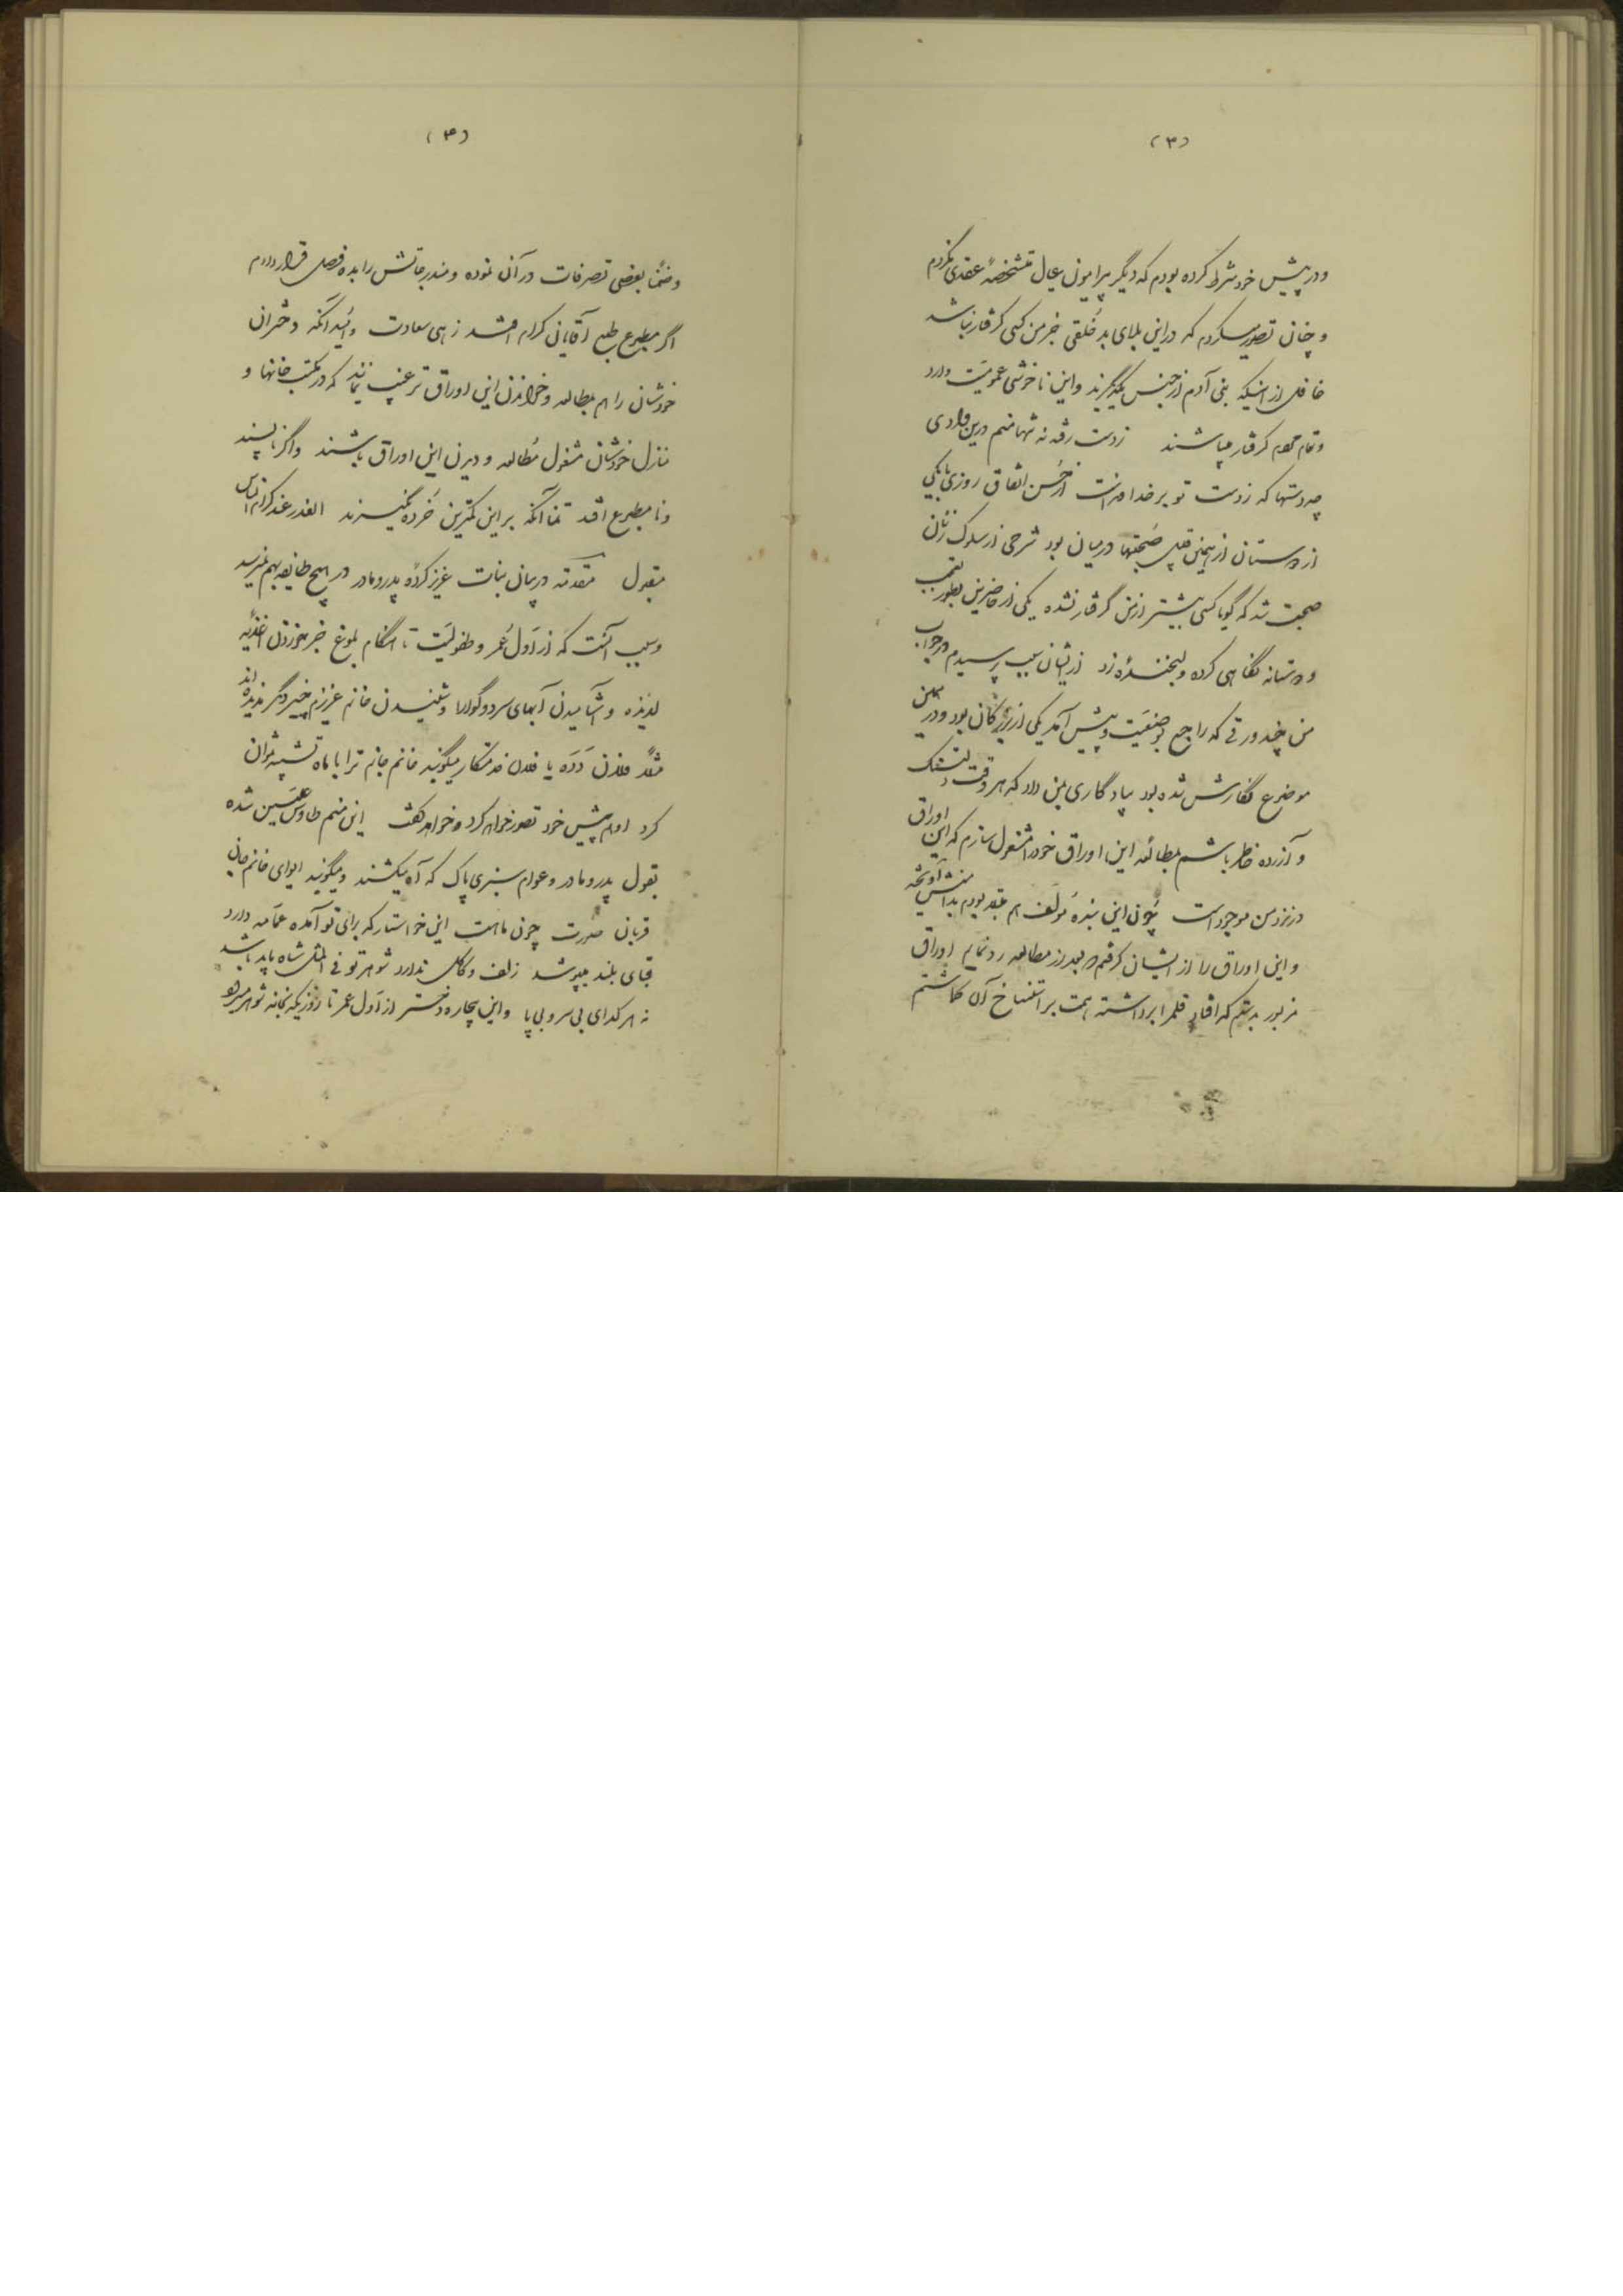 (۳)
و در پیش خود شرط کرده بودم که دیگر پیرامون عیال متشخصهٔ عقدی نگردم
و چنان تصور میکردم که در این بلای بد خُلقی غیر من کسی گرفتار نباشد
غافل از اینکه بنی آدم از جنس یکدیگرند و این ناخوشی عمومیّت دارد
و تمام مردم گرفتار میباشند ز دست رفته نه تنها منم درین وادی
چه دستها که ز دست تو بر خداوند است از حُسن اتفاق روزی با یکی
از دوستان از همین قبیل صُحبتها در میان بود شرحی از سلوک زنان
صحبت شد که گویا کسی بیشتر از من گرفتار نشده یکی از حاضرین بطور تعجب
و دوستانه نگاهی کرده و لبخندهٔ زد از ایشان سبب پرسیدم در جواب
من چند ورقی که راجع بوضعیّت و پیش آمد یکی از بزرگان بود و در همین
موضوع نگارش شده بود بیادگاری بمن داد که هر وقت دلتنگ
و آزرده خاطر باشم بمطالعه این اوراق خود را مشغول سازم که این اوراق
در نزد من موجود است چون این بندهٔ مولّف هم
و این اوراق را از ایشان گرفتم و بعد از مطالعه رد نمایم اوراق
مزبور بدستم که افتاد قلم را برداشته همت بر استنساخ آن گماشتم
(۴)
و ضمناً بعضی تصرفات در آن نموده و مندرجاتش را بده فصل قرار دادم
اگر مطبوع طبع آقایان کرام افتد زهی سعادت و امید آنکه دختران
خودشان را هم بمطالعه و خواندن این اوراق ترغیب نمایند که در مکتب خانها و
منازل خودشان مشغول مُطالعه و دیدن این اوراق باشند و اگر ناپسند
و نا مطبوع افتد تمنا آنکه بر این کمترین خرده نگیرند العذر عند کرام الناس
مقبول مقدمه در میان بنات عزیز کردهٔ پدر و مادر در هیچ طایفه بهم نمیرسد
و سبب آنست که از اول عُمر و طفولیّت تا هنگام بلوغ غیر خوردن اغذیه
لذیذه و آشامیدن آبهای سرد و گوارا و شنیدن خانم عزیزم چیز دیگر ندیده‌اند
مثلاً فلان دَدَه یا فلان خدمتکار میگوید خانم جانم ترا با ماه تشبیه نتوان
کرد او هم پیش خود تصور خواهد کرد و خواهد گفت این منم طاوس علیین شده
بقول پدر و مادر و عوام سبزی پاک که آه میکشند و میگویند ایوای خانم جانی
قربان صورت چون ماهت این خواستار که برای تو آمده عمامه دارد
قبای بلند میپوشد زلف و کاکل ندارد شوهر تو فی المثل شاه باید باشد
نه هر گدای بی سر و بی پا و این بیچاره دختر از اول عمر تا روزیکه بخانه شوهر میرود